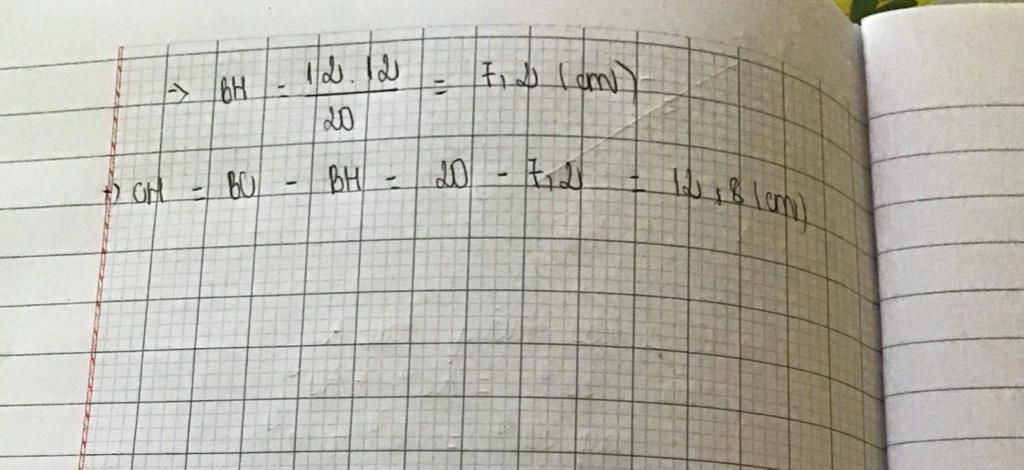 → BH = 12.12/20 = 7,2 (cm)
→ CH = BC - BH = 20 - 7,2 = 12,8 (cm)